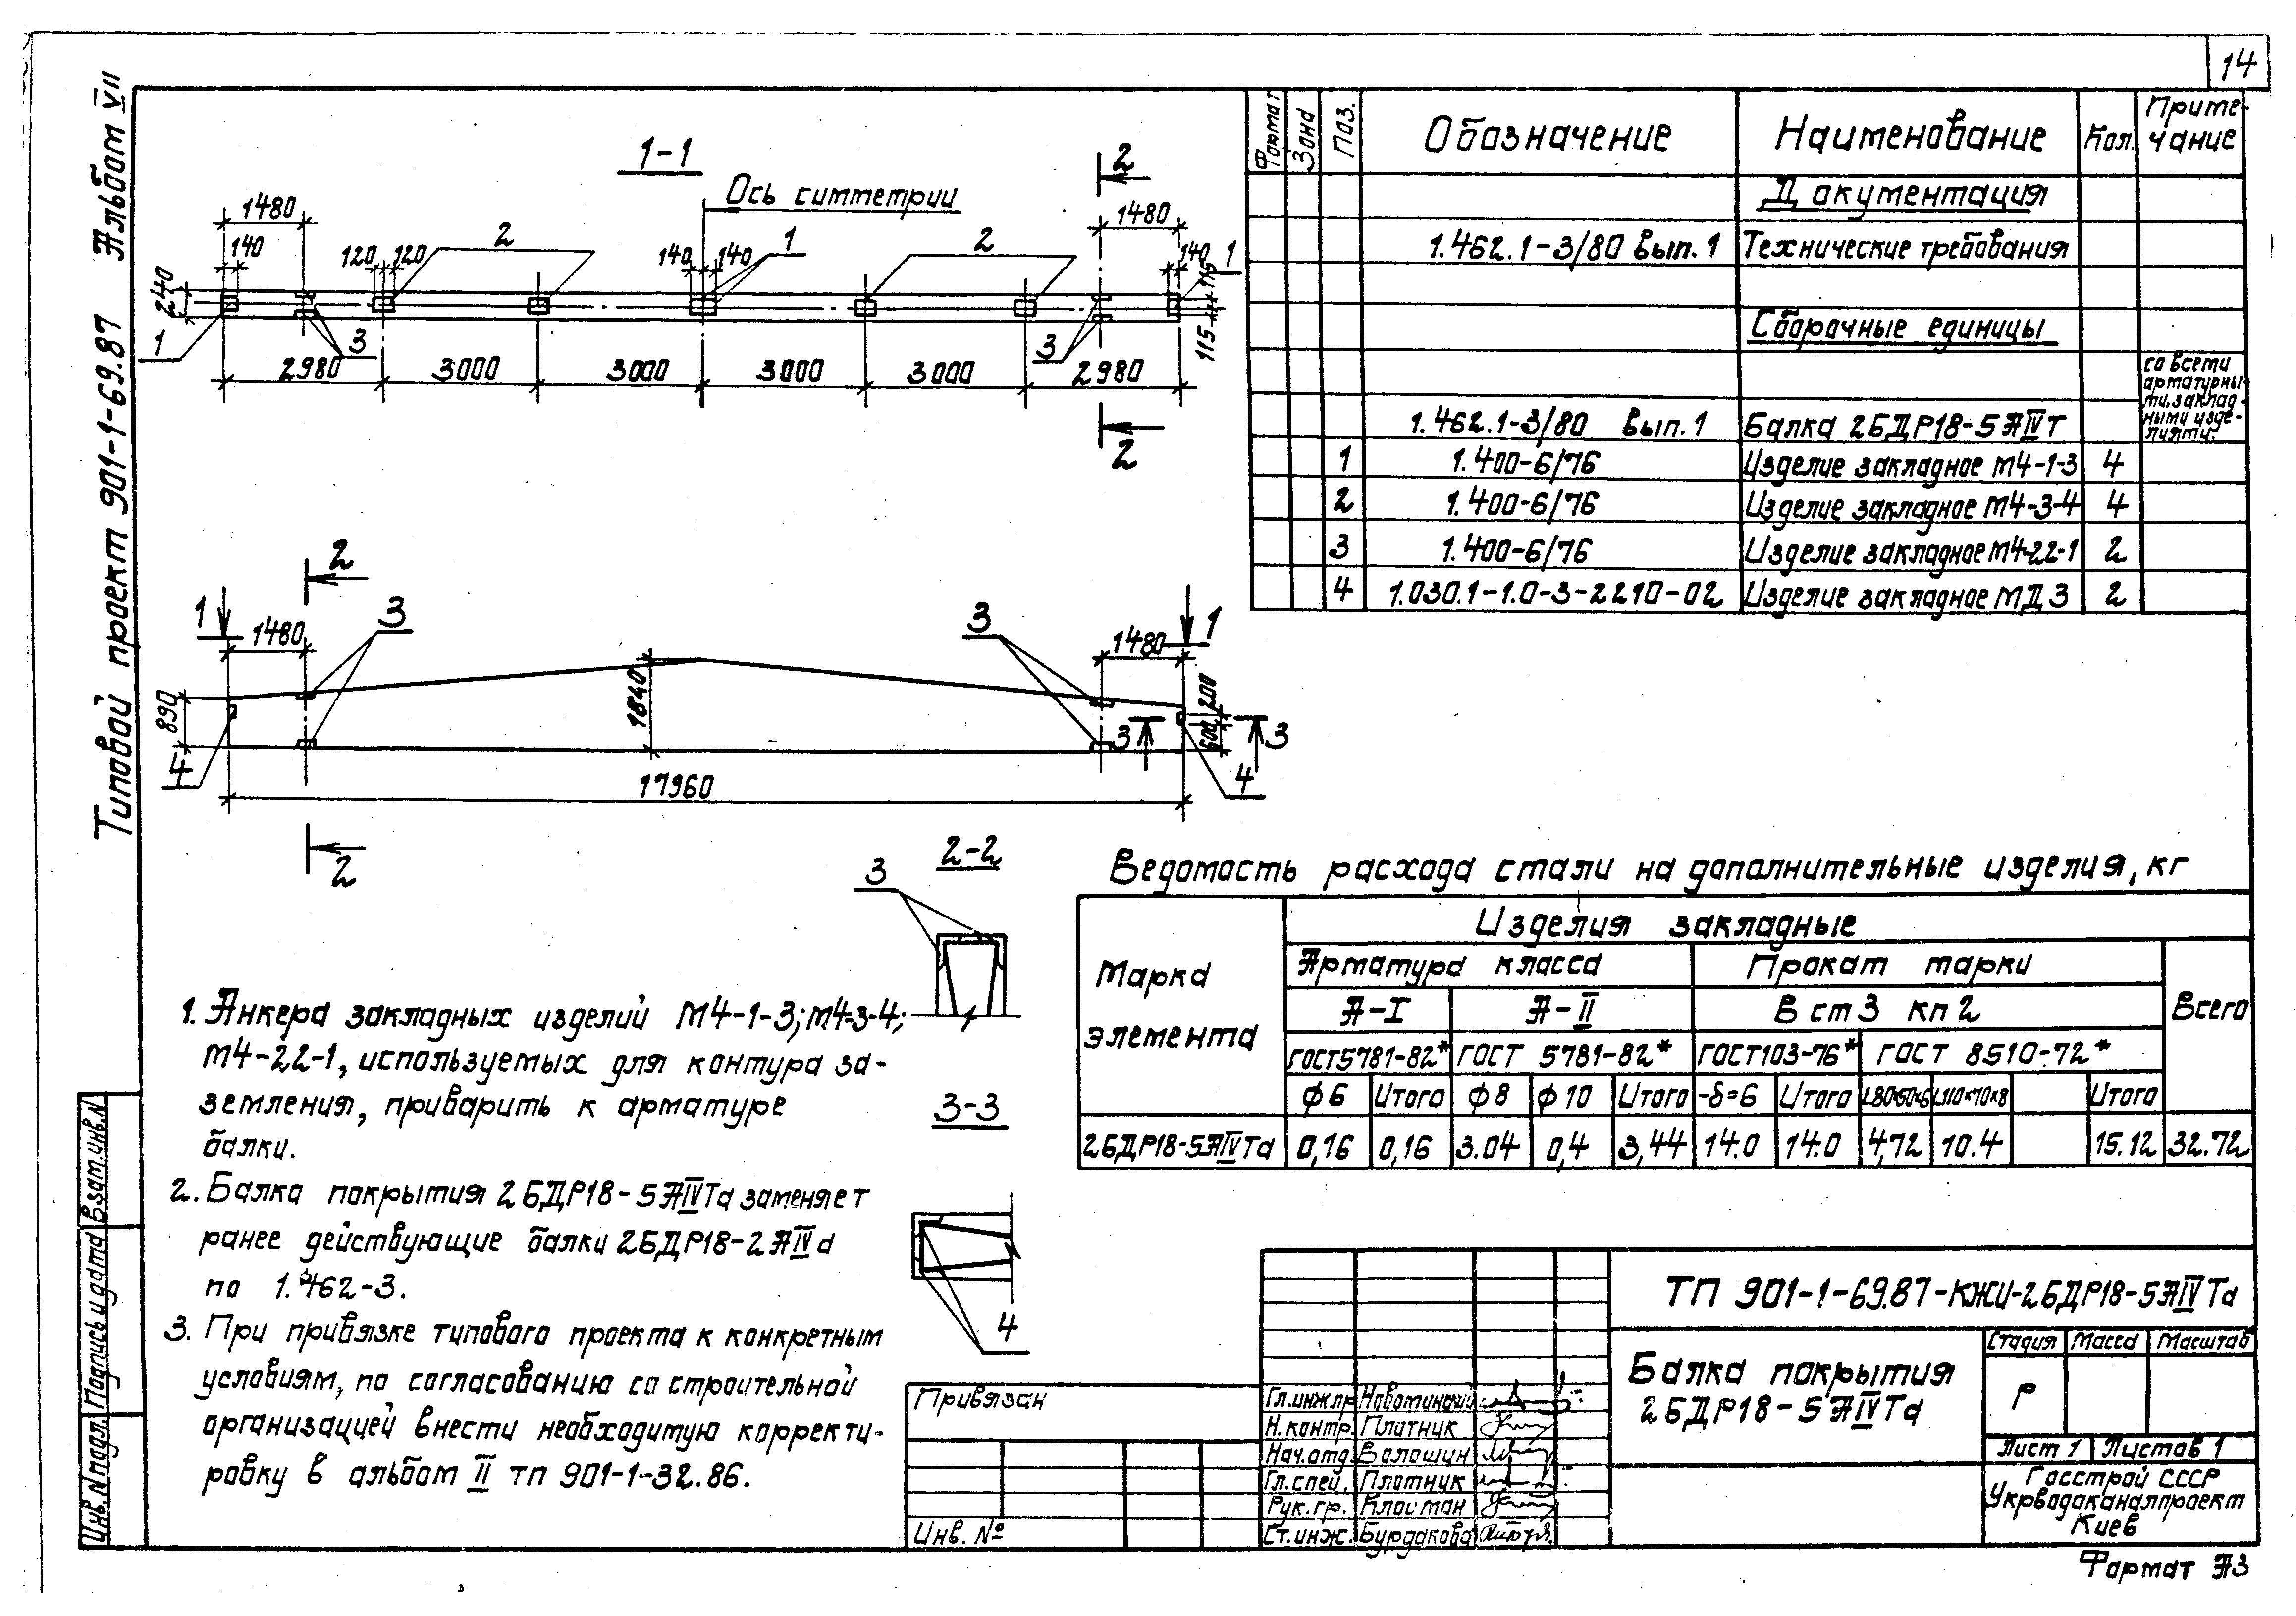 14
Типовой проект 901-1-69.87 Альбом VII
1-1
Ось симметрии
2
1480
1480
140
120
120
2
140
140
1
2
140
115
1
240
1
3
3
115
2980
3000
3000
3000
3000
2980
2
2
1
1480
3
3
1480
1
890
1840
200
600
3
3
4
4
17960
2
2-2
3
3-3
4
Формат
Зона
Поз.
Обозначение
Наименование
Кол.
Приме-
чание
Документация
1.462.1-3/80 вып.1 Технические требования
Сборочные единицы
1.462.1-3/80 вып.1 Балка 2БДР18-5АIVТ
со всеми
арматурны-
ми, заклад-
ными изде-
лиями.
1 1.400-6/76 Изделие закладное М4-1-3 4
2 1.400-6/76 Изделие закладное М4-3-4 4
3 1.400-6/76 Изделие закладное М4-22-1 2
4 1.030.1-1.0-3-2210-02 Изделие закладное МД3 2
Ведомость расхода стали на дополнительные изделия, кг
Марка
элемента
Изделия закладные
Арматура класса Прокат марки
А-I А-II Вст3 кп2 Всего
ГОСТ5781-82* ГОСТ 5781-82* ГОСТ103-76* ГОСТ 8510-72*
ф6 Итого ф8 ф10 Итого -δ=6 Итого L80×50×6 L110×70×8 Итого
2БДР18-5АIVТа 0,16 0,16 3.04 0,4 3,44 14.0 14.0 4,72 10.4 15.12 32.72
1. Анкера закладных изделий М4-1-3; М4-3-4;
М4-22-1, используемых для контура за-
земления, приварить к арматуре
балки.
2. Балка покрытия 2БДР18-5АIVТа заменяет
ранее действующие балки 2БДР18-2АIVа
по 1.462-3.
3. При привязке типового проекта к конкретным
условиям, по согласованию со строительной
организацией внести необходимую корректи-
ровку в альбом II тп 901-1-32.86.
Взам.инв.N
Подпись и дата
Инв.N подл.
Привязан
Инв. №
Гл.инж.пр Новоминский
Н.контр. Плотник
Нач.отд. Волошин
Гл.спец. Плотник
Рук.гр. Клоцман
Ст.инж. Бурдакова
ТП 901-1-69.87-КЖИ-2БДР18-5АIVТа
Балка покрытия
2БДР18-5АIVТа
Стадия Масса Масштаб
Р
Лист 1 Листов 1
Госстрой СССР
Укрводоканалпроект
Киев
Формат А3